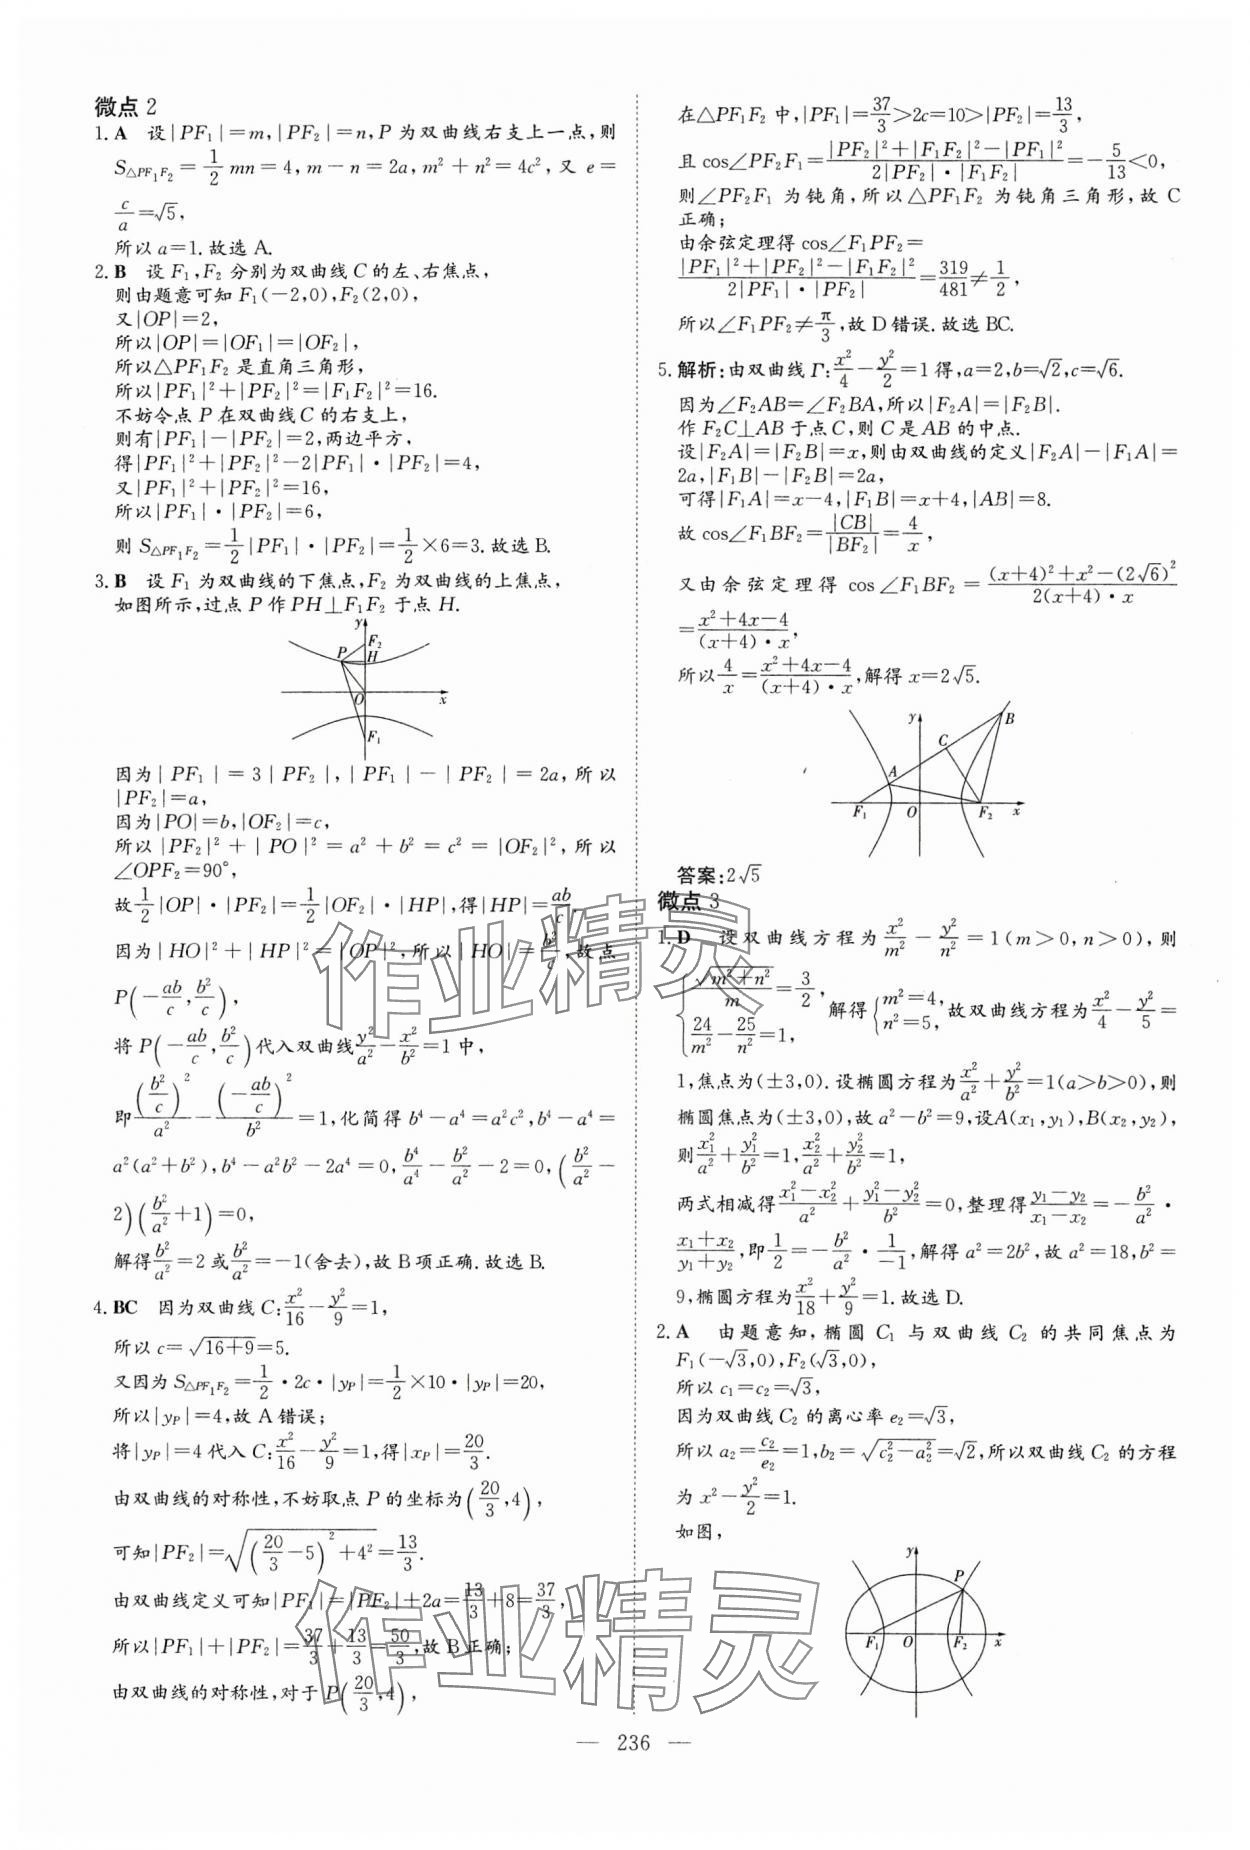 微点 2
1. A 设|PF₁|=m,|PF₂|=n,P为双曲线右支上一点,则
S△PF₁F₂=1/2 mn=4,m-n=2a,m²+n²=4c²,又 e=
c/a=√5,
所以 a=1.故选 A.
2. B 设 F₁,F₂ 分别为双曲线 C 的左、右焦点,
则由题意可知 F₁(-2,0),F₂(2,0),
又|OP|=2,
所以|OP|=|OF₁|=|OF₂|,
所以△PF₁F₂ 是直角三角形,
所以|PF₁|²+|PF₂|²=|F₁F₂|²=16.
不妨令点 P 在双曲线 C 的右支上,
则有|PF₁|-|PF₂|=2,两边平方,
得|PF₁|²+|PF₂|²-2|PF₁|·|PF₂|=4,
又|PF₁|²+|PF₂|²=16,
所以|PF₁|·|PF₂|=6,
则 S△PF₁F₂=1/2|PF₁|·|PF₂|=1/2×6=3.故选 B.
3. B 设 F₁ 为双曲线的下焦点,F₂ 为双曲线的上焦点,
如图所示,过点 P 作 PH⊥F₁F₂ 于点 H.
y
F₂
P H
O x
F₁
因为|PF₁|=3|PF₂|,|PF₁|-|PF₂|=2a,所以
|PF₂|=a,
因为|PO|=b,|OF₂|=c,
所以|PF₂|²+|PO|²=a²+b²=c²=|OF₂|²,所以
∠OPF₂=90°,
故1/2|OP|·|PF₂|=1/2|OF₂|·|HP|,得|HP|=ab/c,
因为|HO|²+|HP|²=|OP|²,所以|HO|=b²/c,故点
P(-ab/c,b²/c),
将 P(-ab/c,b²/c)代入双曲线y²/a²-x²/b²=1中,
即(b²/c)²/a²-(-ab/c)²/b²=1,化简得 b⁴-a⁴=a²c²,b⁴-a⁴=
a²(a²+b²),b⁴-a²b²-2a⁴=0,b⁴/a⁴-b²/a²-2=0,(b²/a²-
2)(b²/a²+1)=0,
解得b²/a²=2或b²/a²=-1(舍去),故 B 项正确.故选 B.
4. BC 因为双曲线 C:x²/16-y²/9=1,
所以 c=√(16+9)=5.
又因为 S△PF₁F₂=1/2·2c·|y_P|=1/2×10·|y_P|=20,
所以|y_P|=4,故 A 错误;
将|y_P|=4代入 C:x²/16-y²/9=1,得|x_P|=20/3.
由双曲线的对称性,不妨取点 P 的坐标为(20/3,4),
可知|PF₂|=√((20/3-5)²+4²)=13/3.
由双曲线定义可知|PF₁|=|PF₂|+2a=13/3+8=37/3,
所以|PF₁|+|PF₂|=37/3+13/3=50/3,故 B 正确;
由双曲线的对称性,对于 P(20/3,4),
在△PF₁F₂ 中,|PF₁|=37/3>2c=10>|PF₂|=13/3,
且 cos∠PF₂F₁=(|PF₂|²+|F₁F₂|²-|PF₁|²)/(2|PF₂|·|F₁F₂|)=-5/13<0,
则∠PF₂F₁ 为钝角,所以△PF₁F₂ 为钝角三角形,故 C
正确;
由余弦定理得 cos∠F₁PF₂=
(|PF₁|²+|PF₂|²-|F₁F₂|²)/(2|PF₁|·|PF₂|)=319/481≠1/2,
所以∠F₁PF₂≠π/3,故 D 错误.故选 BC.
5. 解析:由双曲线 Γ:x²/4-y²/2=1得,a=2,b=√2,c=√6.
因为∠F₂AB=∠F₂BA,所以|F₂A|=|F₂B|.
作 F₂C⊥AB 于点 C,则 C 是 AB 的中点.
设|F₂A|=|F₂B|=x,则由双曲线的定义|F₂A|-|F₁A|=
2a,|F₁B|-|F₂B|=2a,
可得|F₁A|=x-4,|F₁B|=x+4,|AB|=8.
故 cos∠F₁BF₂=|CB|/|BF₂|=4/x,
又由余弦定理得 cos∠F₁BF₂=((x+4)²+x²-(2√6)²)/(2(x+4)·x)
=(x²+4x-4)/((x+4)·x),
所以4/x=(x²+4x-4)/((x+4)·x),解得 x=2√5.
y B
C
A
F₁ O F₂ x
答案:2√5
微点 3
1. D 设双曲线方程为x²/m²-y²/n²=1(m>0,n>0),则
{√(m²+n²)/m=3/2, 24/m²-25/n²=1, 解得{m²=4, n²=5, 故双曲线方程为x²/4-y²/5=
1,焦点为(±3,0).设椭圆方程为x²/a²+y²/b²=1(a>b>0),则
椭圆焦点为(±3,0),故 a²-b²=9,设A(x₁,y₁),B(x₂,y₂),
则x₁²/a²+y₁²/b²=1,x₂²/a²+y₂²/b²=1,
两式相减得(x₁²-x₂²)/a²+(y₁²-y₂²)/b²=0,整理得(y₁-y₂)/(x₁-x₂)=-b²/a²·
(x₁+x₂)/(y₁+y₂),即1/2=-b²/a²·1/-1,解得 a²=2b²,故 a²=18,b²=
9,椭圆方程为x²/18+y²/9=1.故选 D.
2. A 由题意知,椭圆 C₁ 与双曲线 C₂ 的共同焦点为
F₁(-√3,0),F₂(√3,0),
所以 c₁=c₂=√3,
因为双曲线 C₂ 的离心率 e₂=√3,
所以 a₂=c₂/e₂=1,b₂=√(c₂²-a₂²)=√2,所以双曲线 C₂ 的方程
为 x²-y²/2=1.
如图,
y
P
F₁ O F₂ x
— 236 —
作业精灵
作业精灵